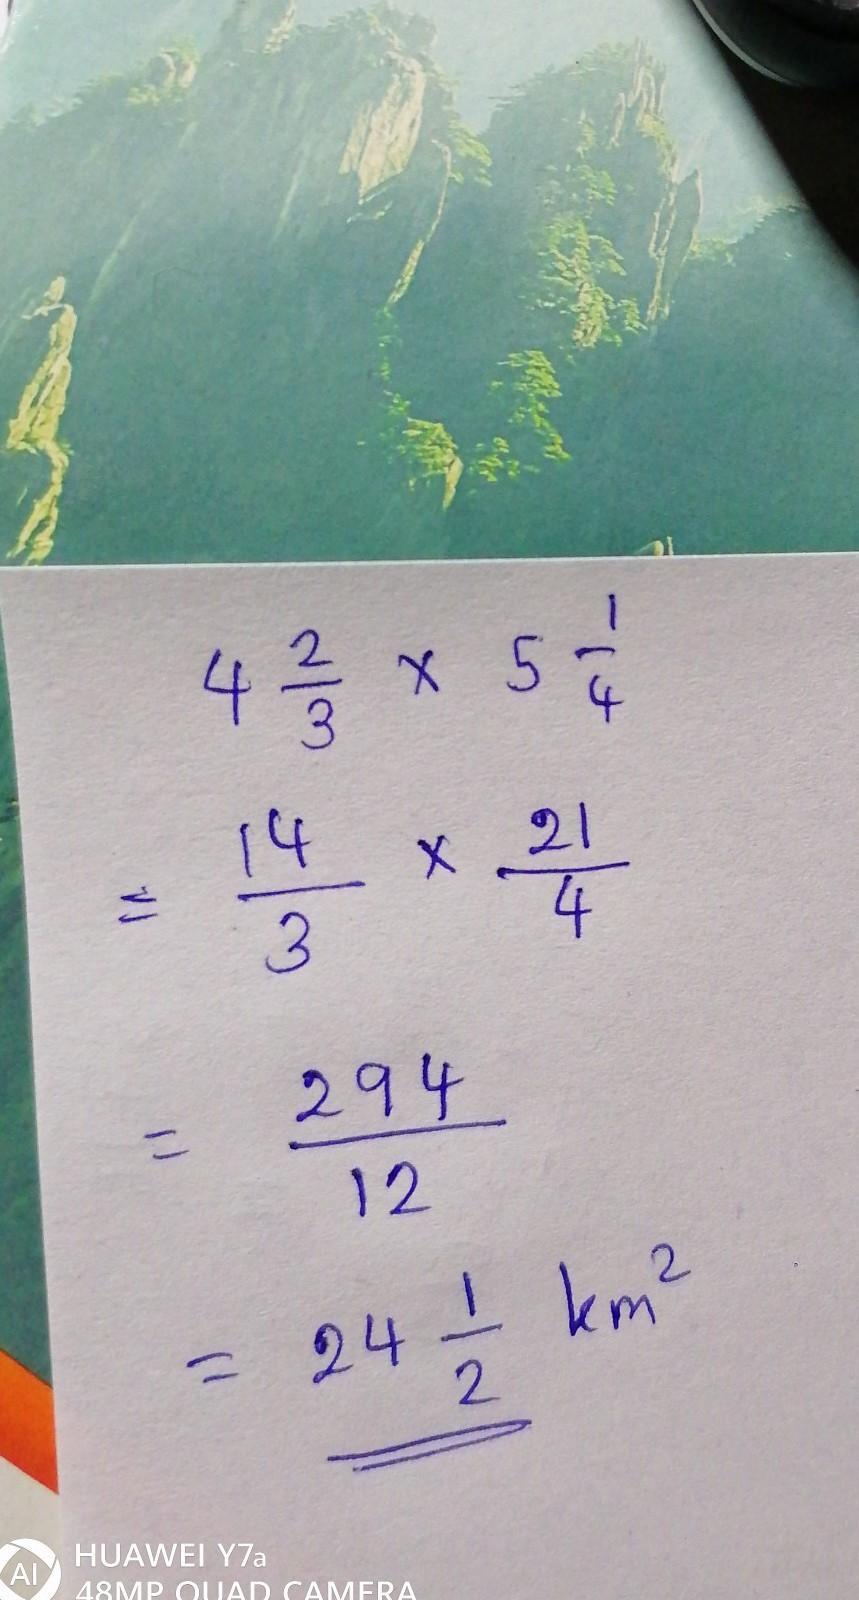 4 2/3 x 5 1/4
= 14/3 x 21/4
= 294/12
= 24 1/2 km²
AI HUAWEI Y7a
48MP QUAD CAMERA